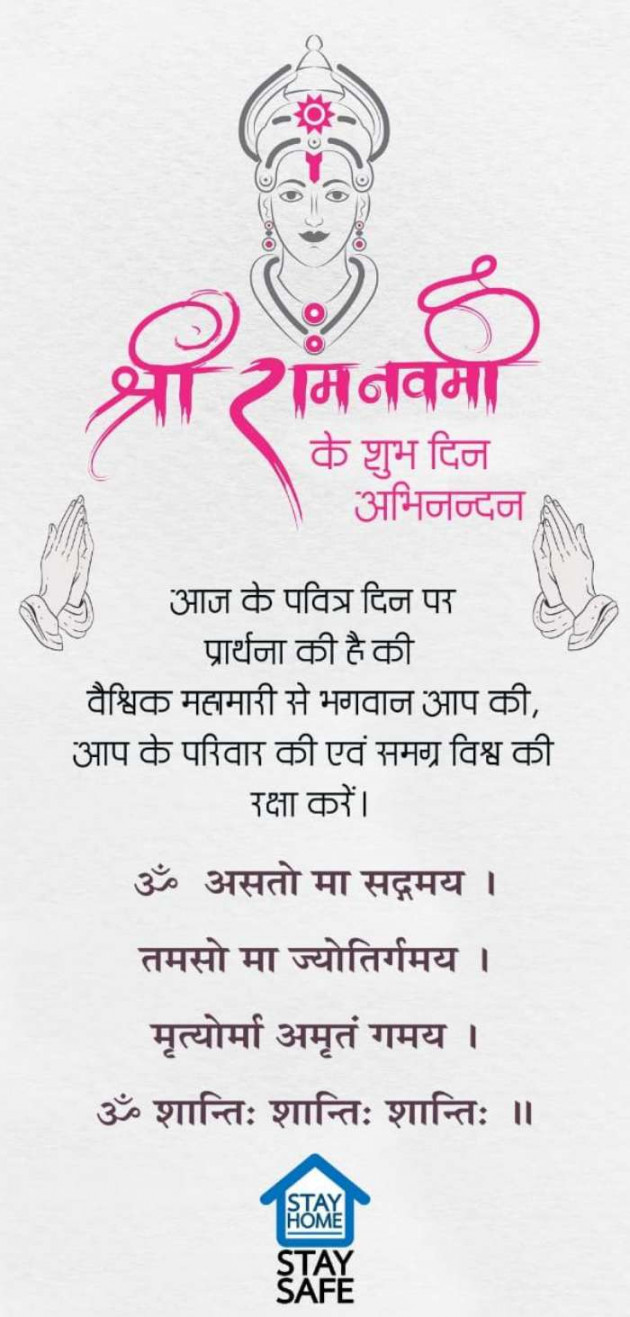 श्री रामनवमी
के शुभ दिन
अभिनन्दन
आज के पवित्र दिन पर
प्रार्थना की है की
वैश्विक महामारी से भगवान आप की,
आप के परिवार की एवं समग्र विश्व की
रक्षा करें।
ॐ असतो मा सद्गमय ।
तमसो मा ज्योतिर्गमय ।
मृत्योर्मा अमृतं गमय ।
ॐ शान्तिः शान्तिः शान्तिः ॥
STAY
HOME
STAY
SAFE